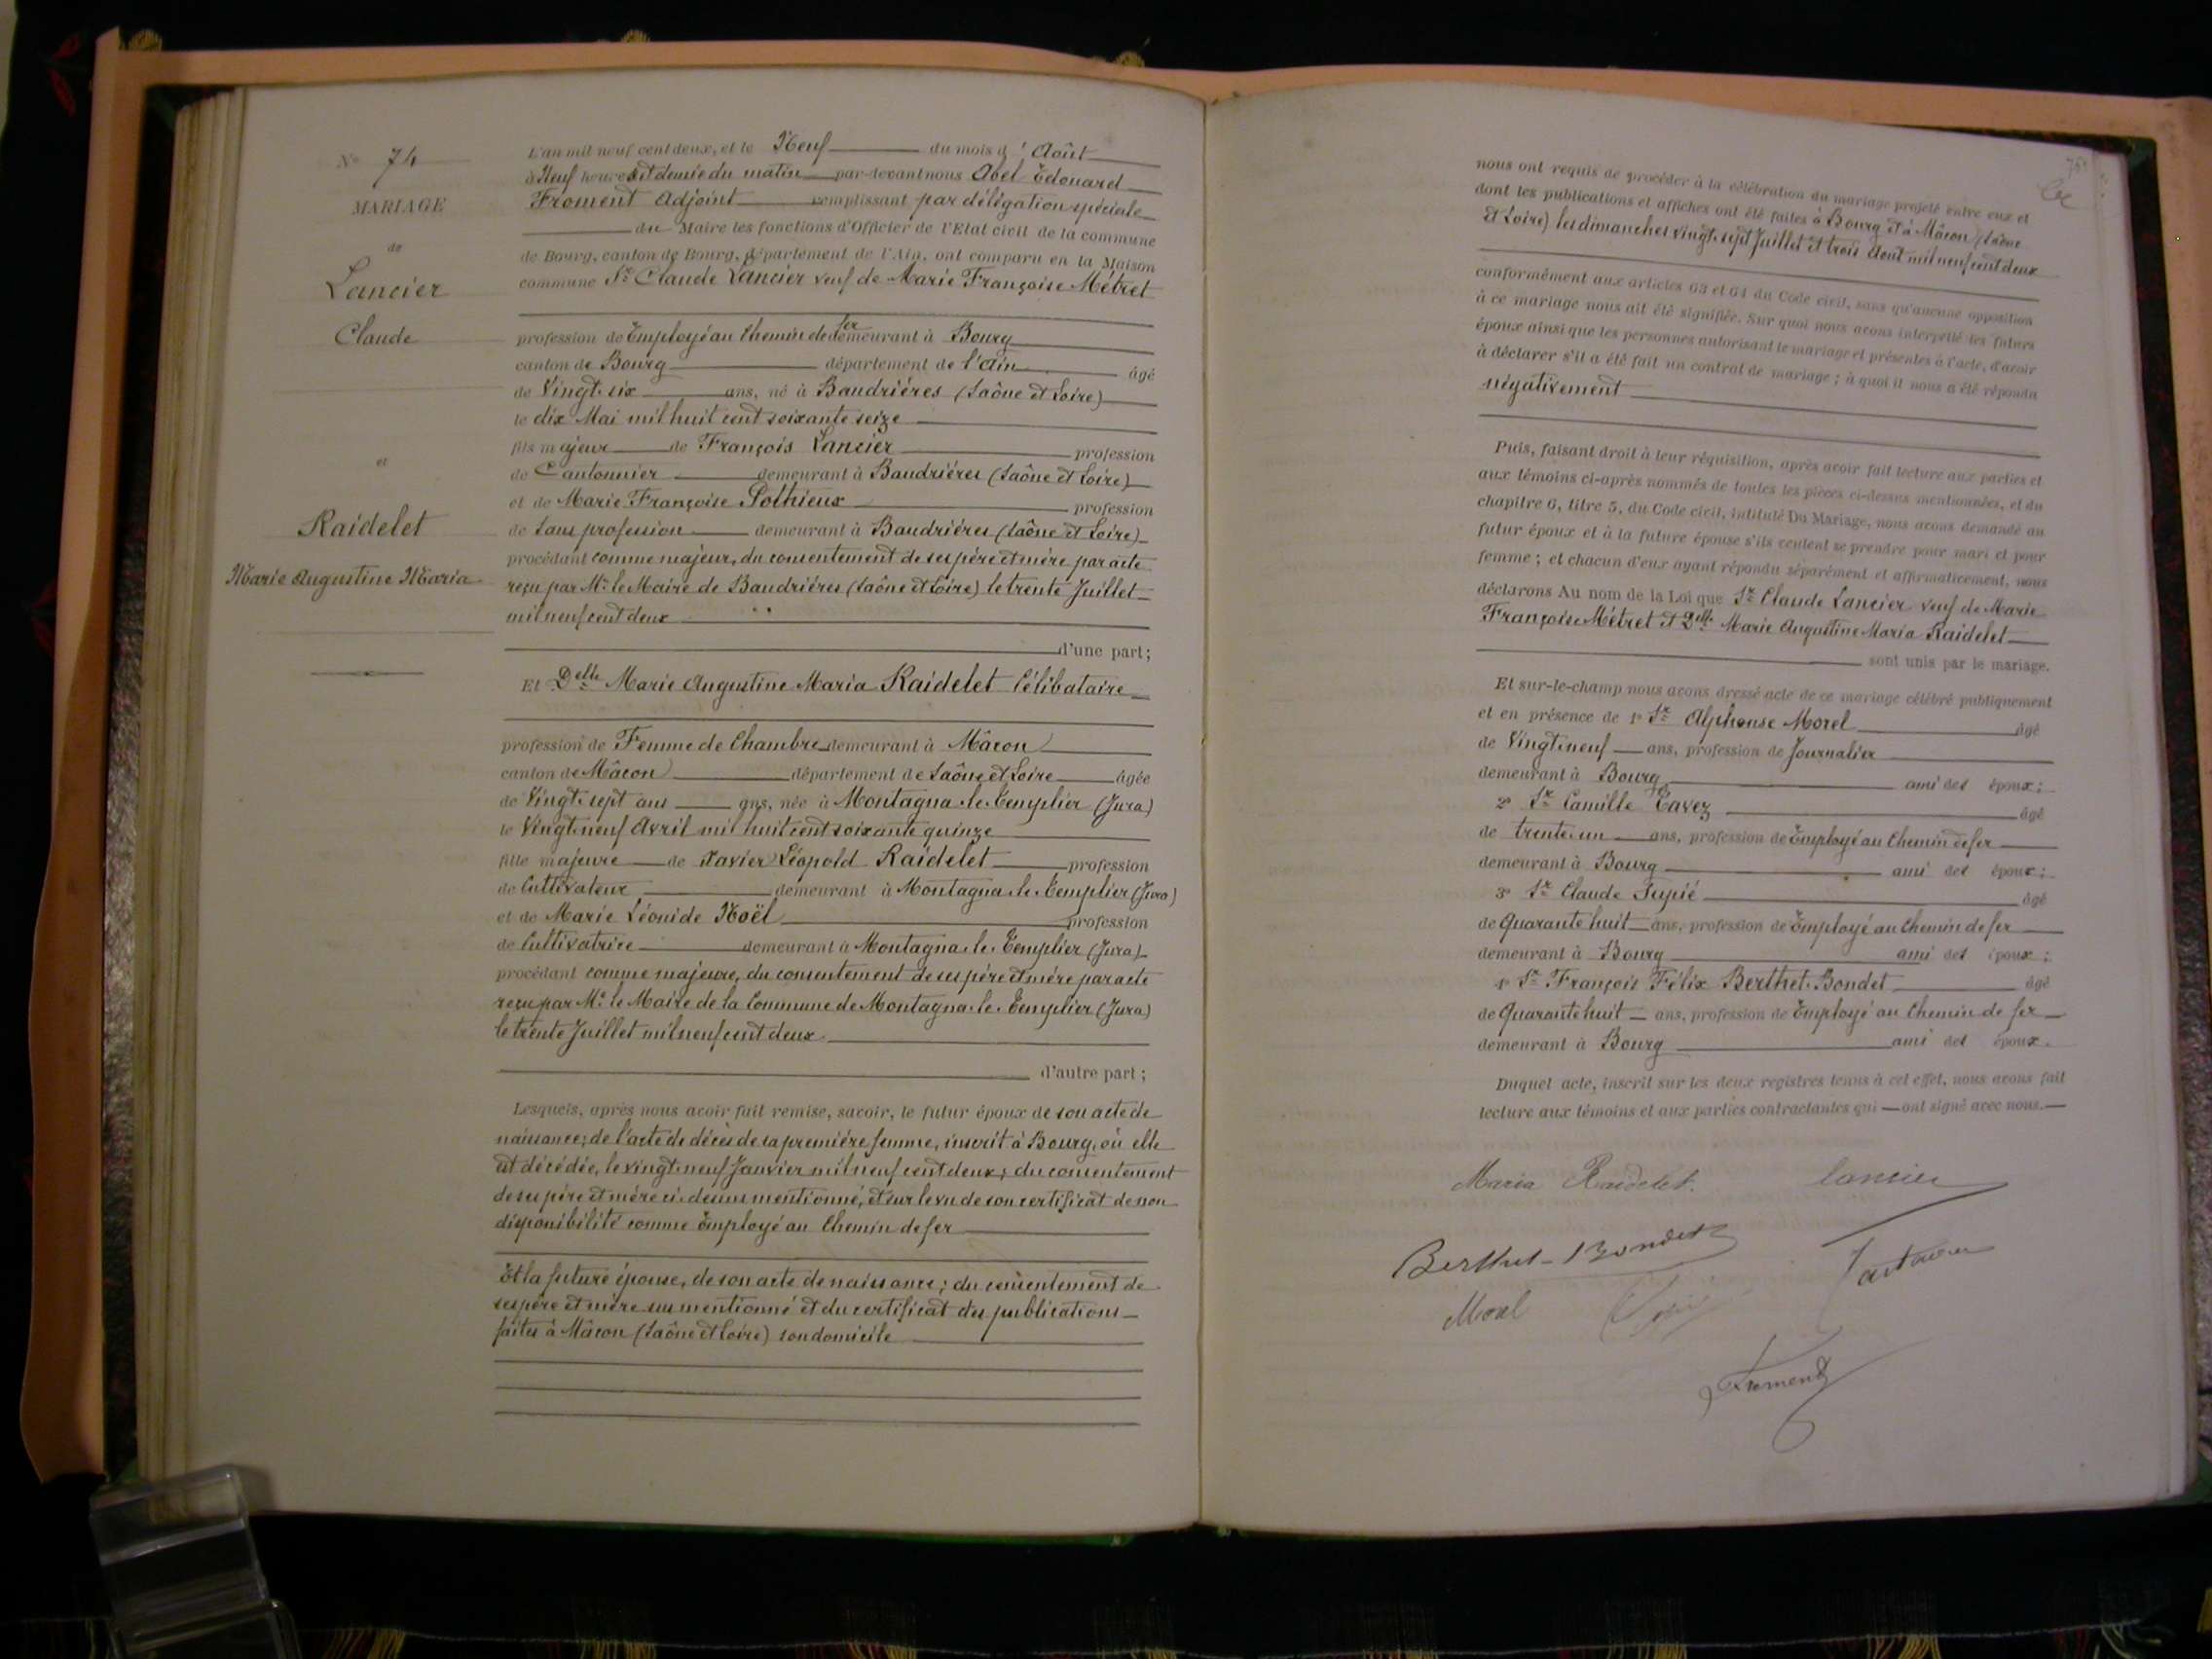 N° 74
MARIAGE
de
Lancier
Claude
et
Raidelet
Marie Augustine Maria
L'an mil neuf cent deux, et le Neuf du mois d'Août
à Neuf heures et demie du matin par-devant nous Abel Edouard
Froment Adjoint remplissant par délégation spéciale
du Maire les fonctions d'Officier de l'Etat civil de la commune
de Bourg, canton de Bourg, département de l'Ain, ont comparu en la Maison
commune Sr Claude Lancier veuf de Marie Françoise Métret
profession de Employé au Chemin de fer demeurant à Bourg
canton de Bourg département de l'Ain âgé
de Vingt-six ans, né à Baudrières (Saône et Loire)
le dix Mai mil huit cent soixante seize
fils majeur de François Lancier profession
de Cantonnier demeurant à Baudrières (Saône et Loire)
et de Marie Françoise Pothieux profession
de Sans profession demeurant à Baudrières (Saône et Loire)
procédant comme majeur, du consentement de ses père et mère par acte
reçu par Mr le Maire de Baudrières (Saône et Loire) le trente Juillet
mil neuf cent deux
d'une part;
Et Delle Marie Augustine Maria Raidelet Célibataire
profession de Femme de Chambre demeurant à Mâcon
canton de Mâcon département de Saône et Loire âgée
de Vingt-sept ans ans, née à Montagna-le-Templier (Jura)
le Vingt-neuf Avril mil huit cent soixante quinze
fille majeure de Xavier Léopold Raidelet profession
de Cultivateur demeurant à Montagna-le-Templier (Jura)
et de Marie Léonide Noël profession
de Cultivatrice demeurant à Montagna-le-Templier (Jura)
procédant comme majeure, du consentement de ses père et mère par acte
reçu par Mr le Maire de la Commune de Montagna-le-Templier (Jura)
le trente Juillet mil neuf cent deux
d'autre part;
Lesquels, après nous avoir fait remise, savoir, le futur époux de son acte de
naissance; de l'acte de décès de sa première femme, inscrit à Bourg, où elle
est décédée, le vingt-neuf Janvier mil neuf cent deux; du consentement
de ses père et mère ci-dessus mentionné, et sur le vu de son certificat de non
disponibilité comme Employé au Chemin de fer
Et la future épouse, de son acte de naissance; du consentement de
ses père et mère sus mentionné et du certificat des publications
faites à Mâcon (Saône et Loire) son domicile
75
nous ont requis de procéder à la célébration du mariage projeté entre eux et
dont les publications et affiches ont été faites à Bourg et à Mâcon (Saône
et Loire) les dimanches vingt-sept Juillet et trois Août mil neuf cent deux
conformément aux articles 63 et 64 du Code civil, sans qu'aucune opposition
à ce mariage nous ait été signifiée. Sur quoi nous avons interpellé les futurs
époux ainsi que les personnes autorisant le mariage et présentes à l'acte, d'avoir
à déclarer s'il a été fait un contrat de mariage; à quoi il nous a été répondu
négativement
Puis, faisant droit à leur réquisition, après avoir fait lecture aux parties et
aux témoins ci-après nommés de toutes les pièces ci-dessus mentionnées, et du
chapitre 6, titre 5, du Code civil, intitulé Du Mariage, nous avons demandé au
futur époux et à la future épouse s'ils veulent se prendre pour mari et pour
femme; et chacun d'eux ayant répondu séparément et affirmativement, nous
déclarons Au nom de la Loi que Sr Claude Lancier veuf de Marie
Françoise Métret et Delle Marie Augustine Maria Raidelet
sont unis par le mariage.
Et sur-le-champ nous avons dressé acte de ce mariage célébré publiquement
et en présence de 1° Sr Alphonse Morel âgé
de Vingt-neuf ans, profession de Journalier
demeurant à Bourg ami des époux;
2° Sr Camille Tavez âgé
de trente-un ans, profession de Employé au Chemin de fer
demeurant à Bourg ami des époux;
3° Sr Claude Supié âgé
de Quarante huit ans, profession de Employé au Chemin de fer
demeurant à Bourg ami des époux;
4° Sr François Félix Berthet-Bondet âgé
de Quarante huit ans, profession de Employé au Chemin de fer
demeurant à Bourg ami des époux.
Duquel acte, inscrit sur les deux registres tenus à cet effet, nous avons fait
lecture aux témoins et aux parties contractantes qui ont signé avec nous.
Maria Raidelet. Lancier
Berthet-Bondet
Morel
Froment